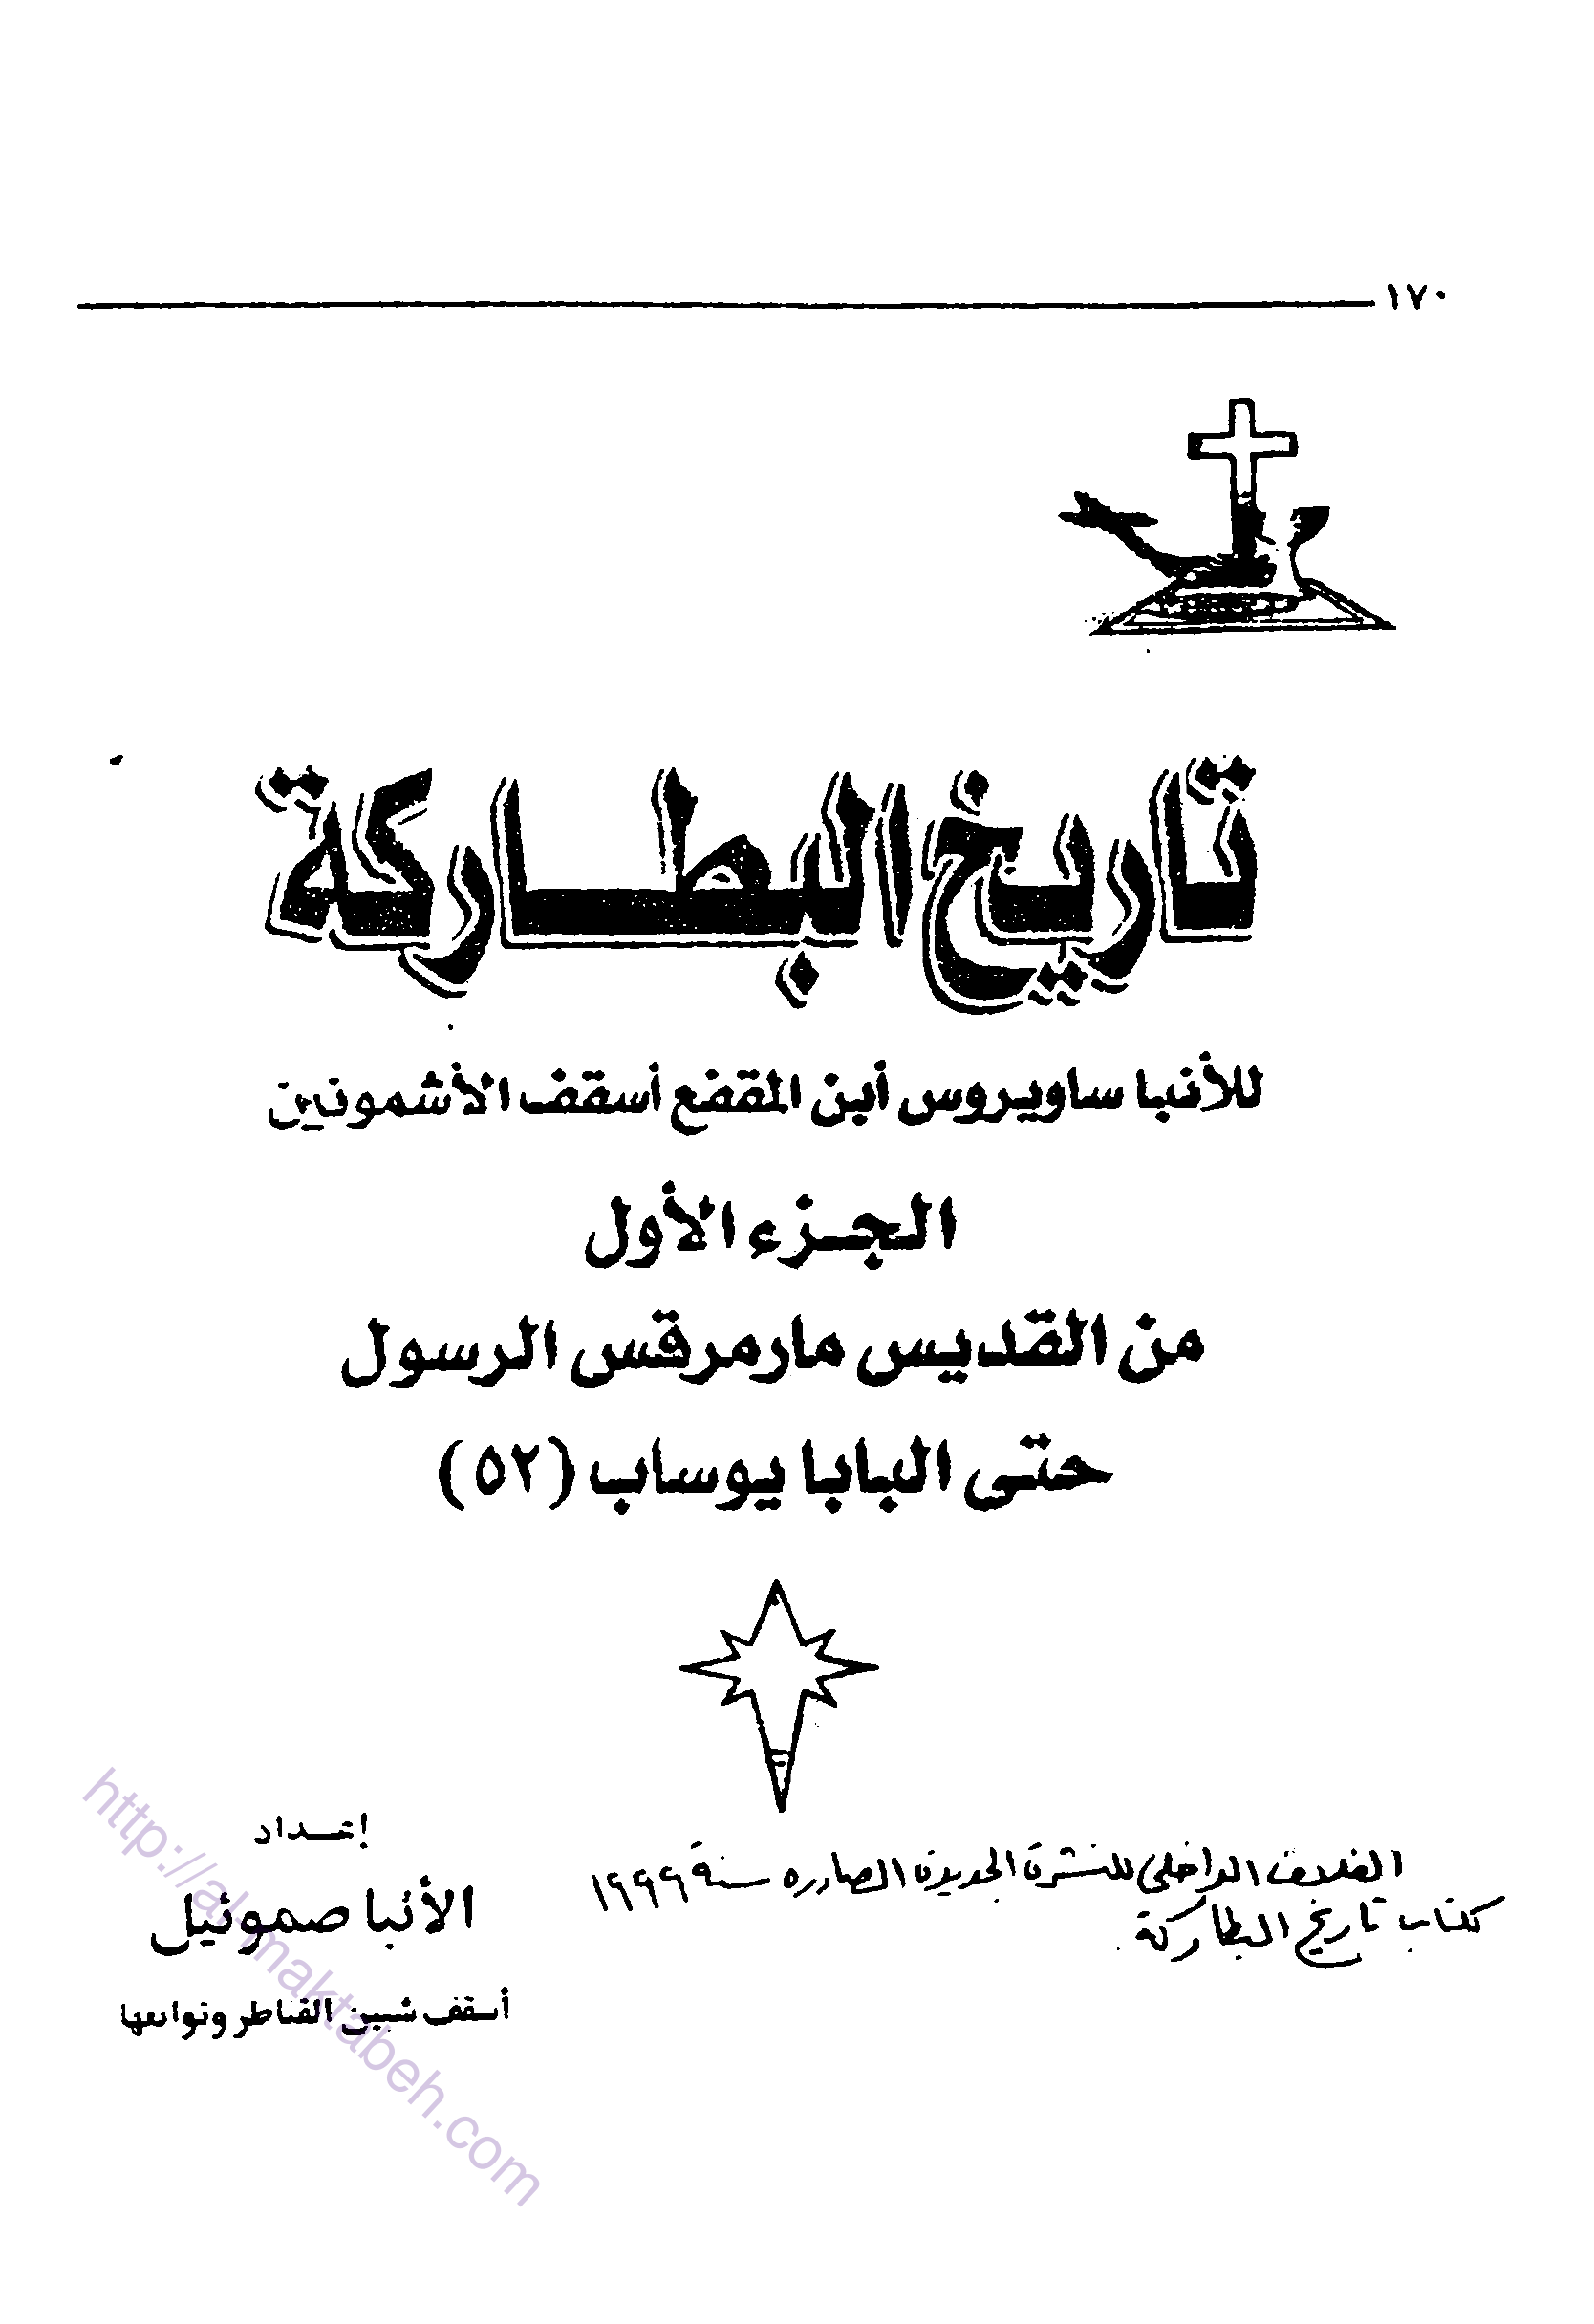 ١٧٠
تاريخ البطاركة
للأنبا ساويروس أبن المقفع أسقف الأشمونين
الجزء الأول
من القديس مارمرقس الرسول
حتى البابا يوساب (٥٢)
الغلاف الداخلى للنشرة الجديدة الصادره سنة ١٩٩٩
كتاب تاريخ البطاركة
إعداد
الأنبا صموئيل
أسقف شبين القناطر وتوابعها
http://al-maktabeh.com